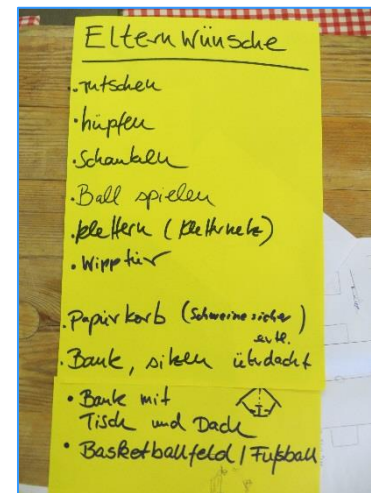 Eltern Wünsche
· rutschen
· hüpfen
· Schaukeln
· Ball spielen
· klettern (Kletternetz)
· Wipptier
· Papierkorb (Schweinesicher)
evtl.
· Bank, sitzen überdacht
· Bank mit
Tisch und Dach
· Basketballfeld / Fußball